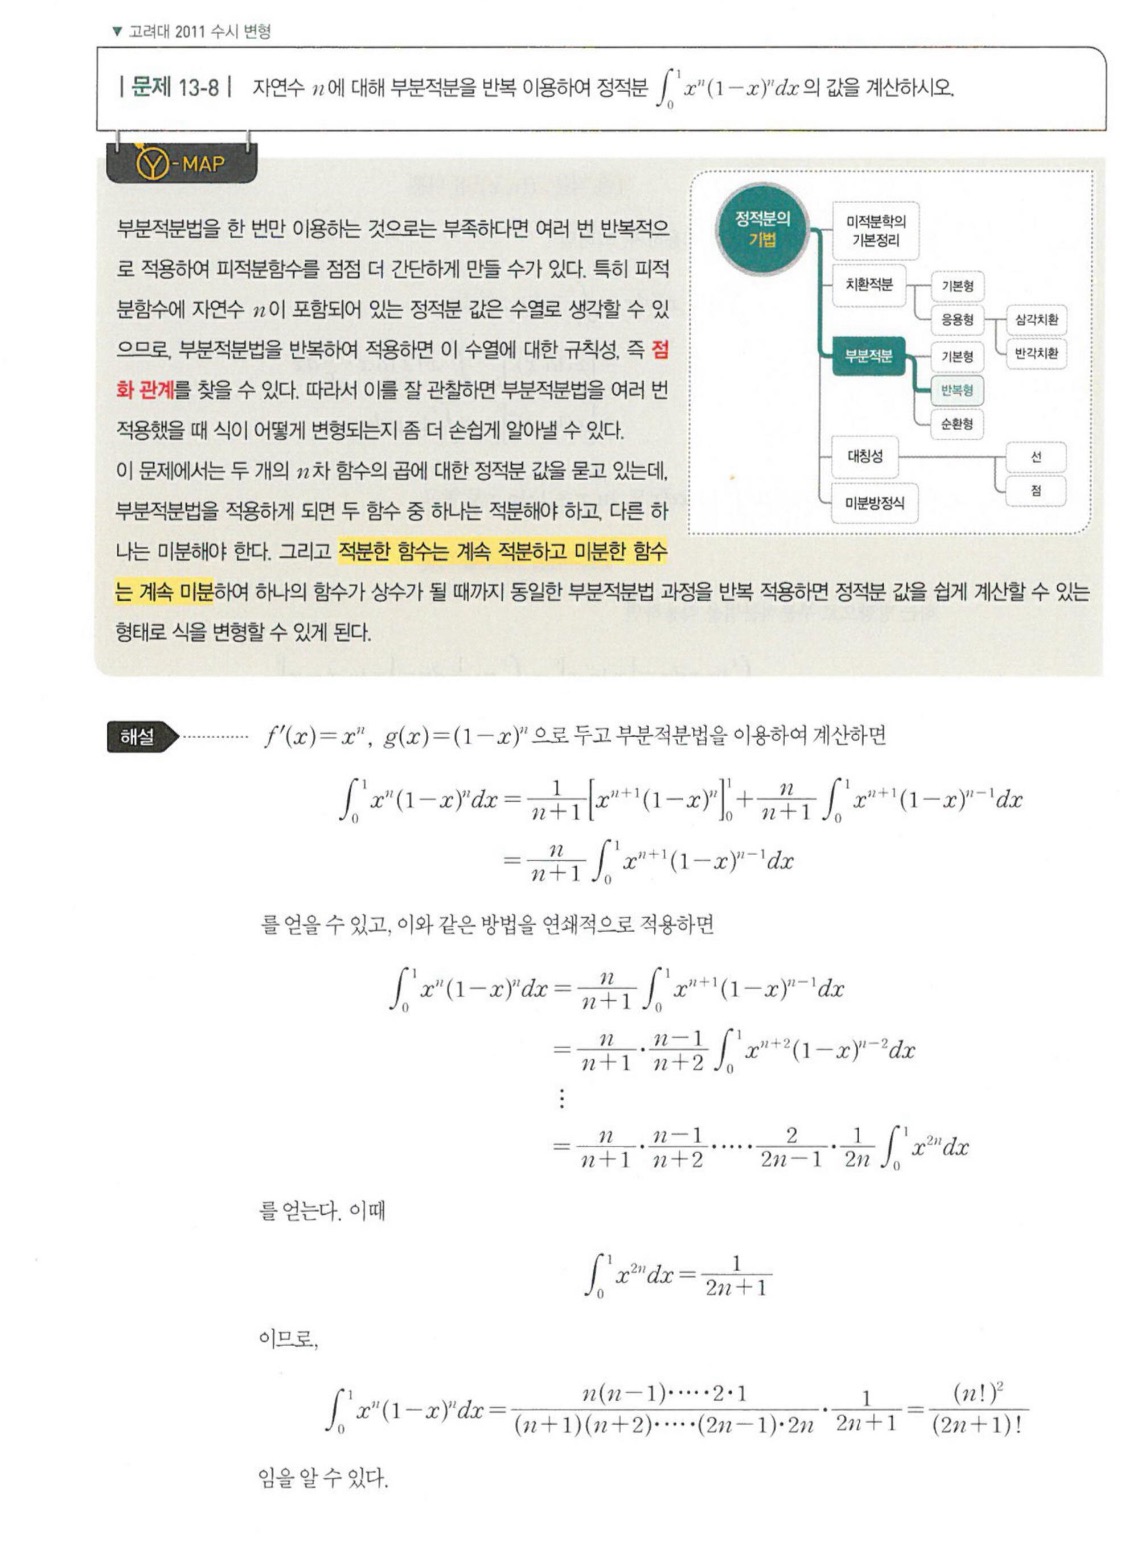 ▼ 고려대 2011 수시 변형
| 문제 13-8 | 자연수 n에 대해 부분적분을 반복 이용하여 정적분 ∫₀¹ xⁿ(1−x)ⁿdx의 값을 계산하시오.
Y-MAP
부분적분법을 한 번만 이용하는 것으로는 부족하다면 여러 번 반복적으
로 적용하여 피적분함수를 점점 더 간단하게 만들 수가 있다. 특히 피적
분함수에 자연수 n이 포함되어 있는 정적분 값은 수열로 생각할 수 있
으므로, 부분적분법을 반복하여 적용하면 이 수열에 대한 규칙성, 즉 점
화 관계를 찾을 수 있다. 따라서 이를 잘 관찰하면 부분적분법을 여러 번
적용했을 때 식이 어떻게 변형되는지 좀 더 손쉽게 알아낼 수 있다.
이 문제에서는 두 개의 n차 함수의 곱에 대한 정적분 값을 묻고 있는데,
부분적분법을 적용하게 되면 두 함수 중 하나는 적분해야 하고, 다른 하
나는 미분해야 한다. 그리고 적분한 함수는 계속 적분하고 미분한 함수
는 계속 미분하여 하나의 함수가 상수가 될 때까지 동일한 부분적분법 과정을 반복 적용하면 정적분 값을 쉽게 계산할 수 있는
형태로 식을 변형할 수 있게 된다.
정적분의
기법
미적분학의
기본정리
치환적분
기본형
응용형
삼각치환
반각치환
부분적분
기본형
반복형
순환형
대칭성
선
점
미분방정식
해설 f′(x)=xⁿ, g(x)=(1−x)ⁿ으로 두고 부분적분법을 이용하여 계산하면
∫₀¹ xⁿ(1−x)ⁿdx = 1/(n+1) [xⁿ⁺¹(1−x)ⁿ]₀¹ + n/(n+1) ∫₀¹ xⁿ⁺¹(1−x)ⁿ⁻¹dx
= n/(n+1) ∫₀¹ xⁿ⁺¹(1−x)ⁿ⁻¹dx
를 얻을 수 있고, 이와 같은 방법을 연쇄적으로 적용하면
∫₀¹ xⁿ(1−x)ⁿdx = n/(n+1) ∫₀¹ xⁿ⁺¹(1−x)ⁿ⁻¹dx
= n/(n+1) · (n−1)/(n+2) ∫₀¹ xⁿ⁺²(1−x)ⁿ⁻²dx
⋮
= n/(n+1) · (n−1)/(n+2) · ⋯ · 2/(2n−1) · 1/2n ∫₀¹ x²ⁿdx
를 얻는다. 이때
∫₀¹ x²ⁿdx = 1/(2n+1)
이므로,
∫₀¹ xⁿ(1−x)ⁿdx = n(n−1)·⋯·2·1/(n+1)(n+2)·⋯·(2n−1)·2n · 1/(2n+1) = (n!)²/(2n+1)!
임을 알 수 있다.